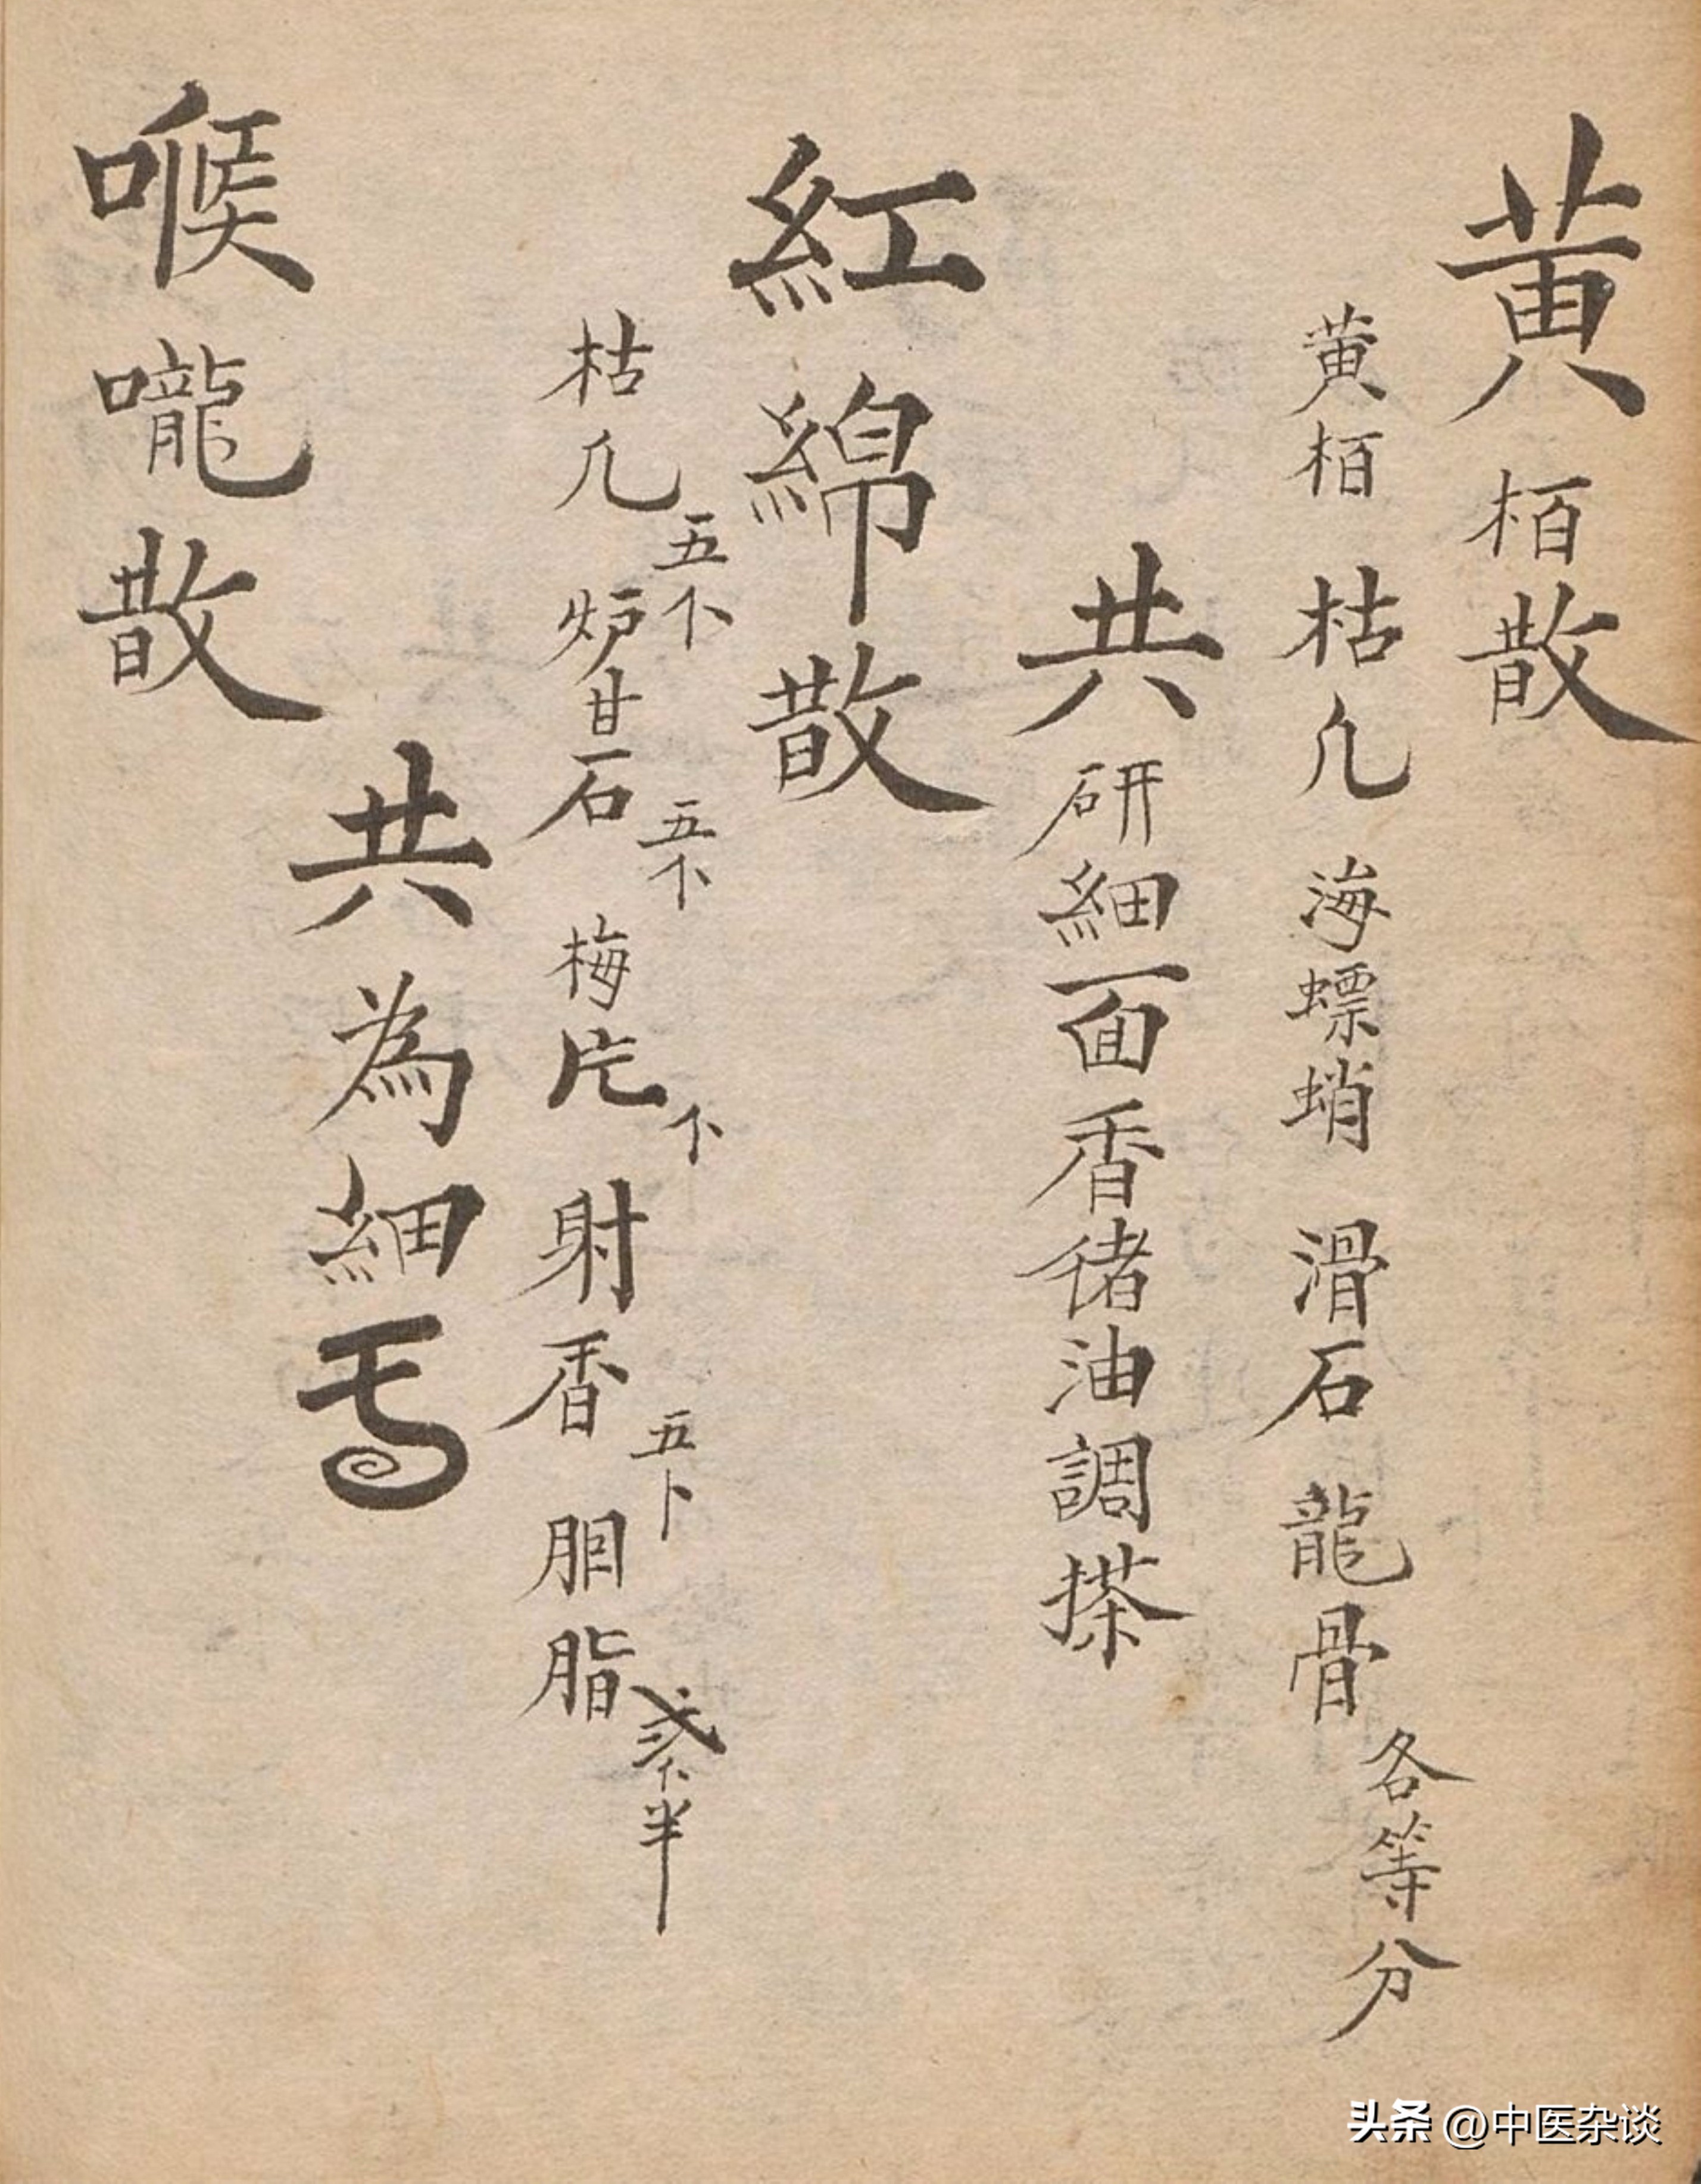 黄栢散
黄栢 枯凡 海螵蛸 滑石 龍骨 各等分
共研細面香偖油調搽
紅綿散
枯凡 五下 炉甘石 五下 梅片 下 射香 五卜 胭脂 弍下半
共為細丐
喉嚨散
头条 @中医杂谈